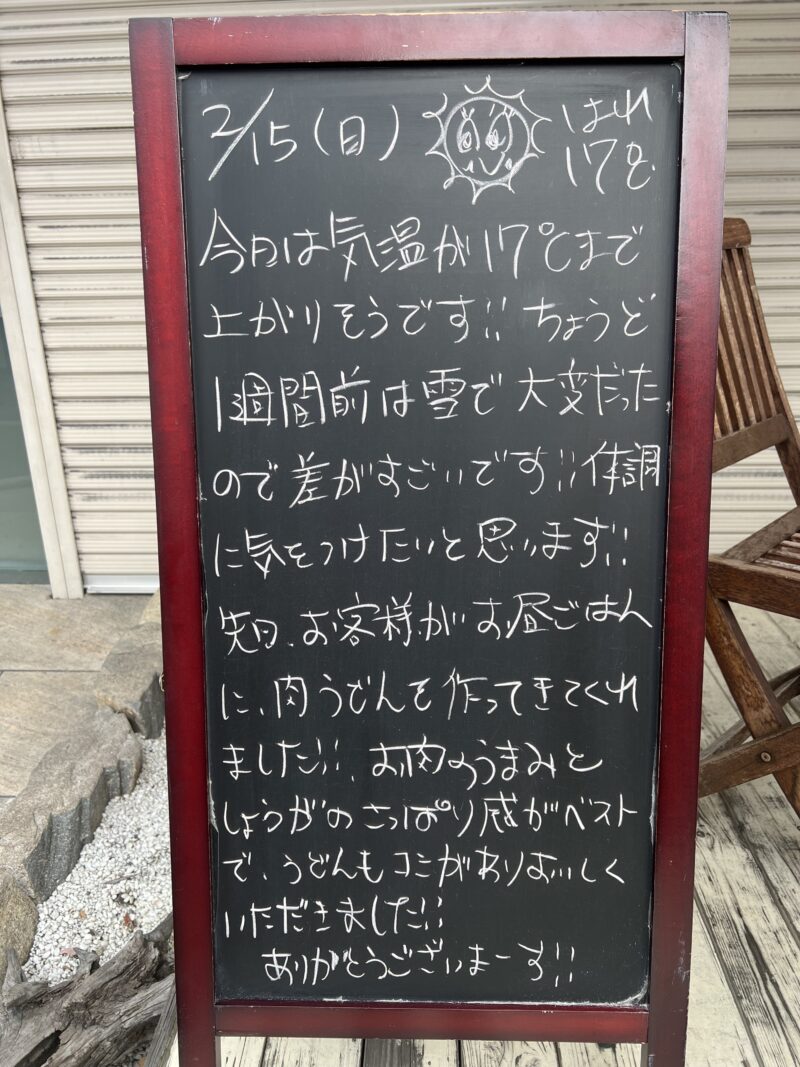 2/15(日)
はれ
17℃
今日は気温が17℃まで
上がりそうです!! ちょうど
1週間前は雪で大変だった
ので差がすごいです!! 体調
に気をつけたいと思います!!
先日、お客様がお昼ごはん
に、肉うどんを作ってきてくれ
ました!!、お肉のうまみと
しょうがのさっぱり感がベスト
で、うどんもコシがありおいしく
いただきました!!
ありがとうございまーす!!